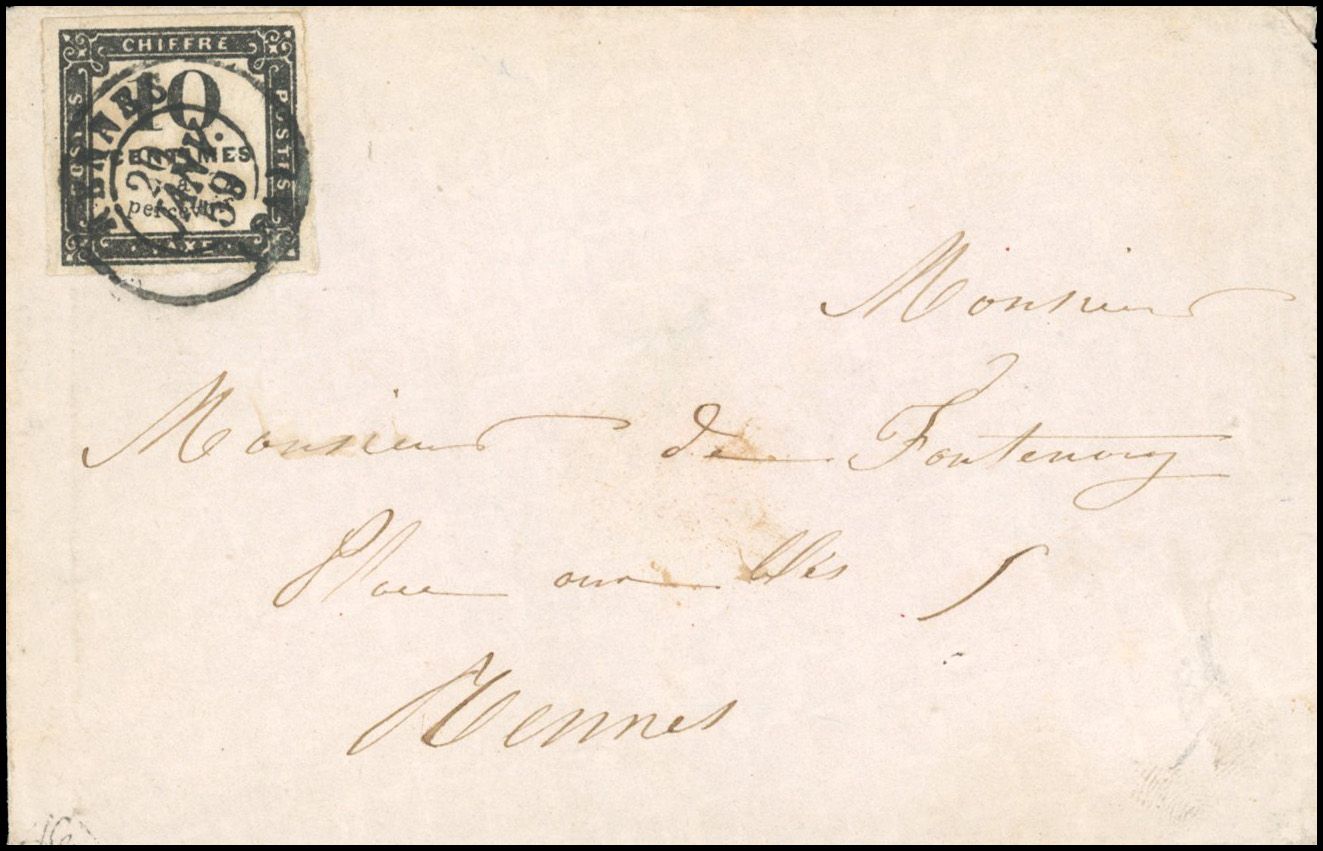 CHIFFRE
POSTES
10
CENTIMES
à
percevoir
POSTES
TAXE
RENNES
20
JANV.
59
Monsieur
Monsieur de Fontenay
Place aux Blés
Rennes